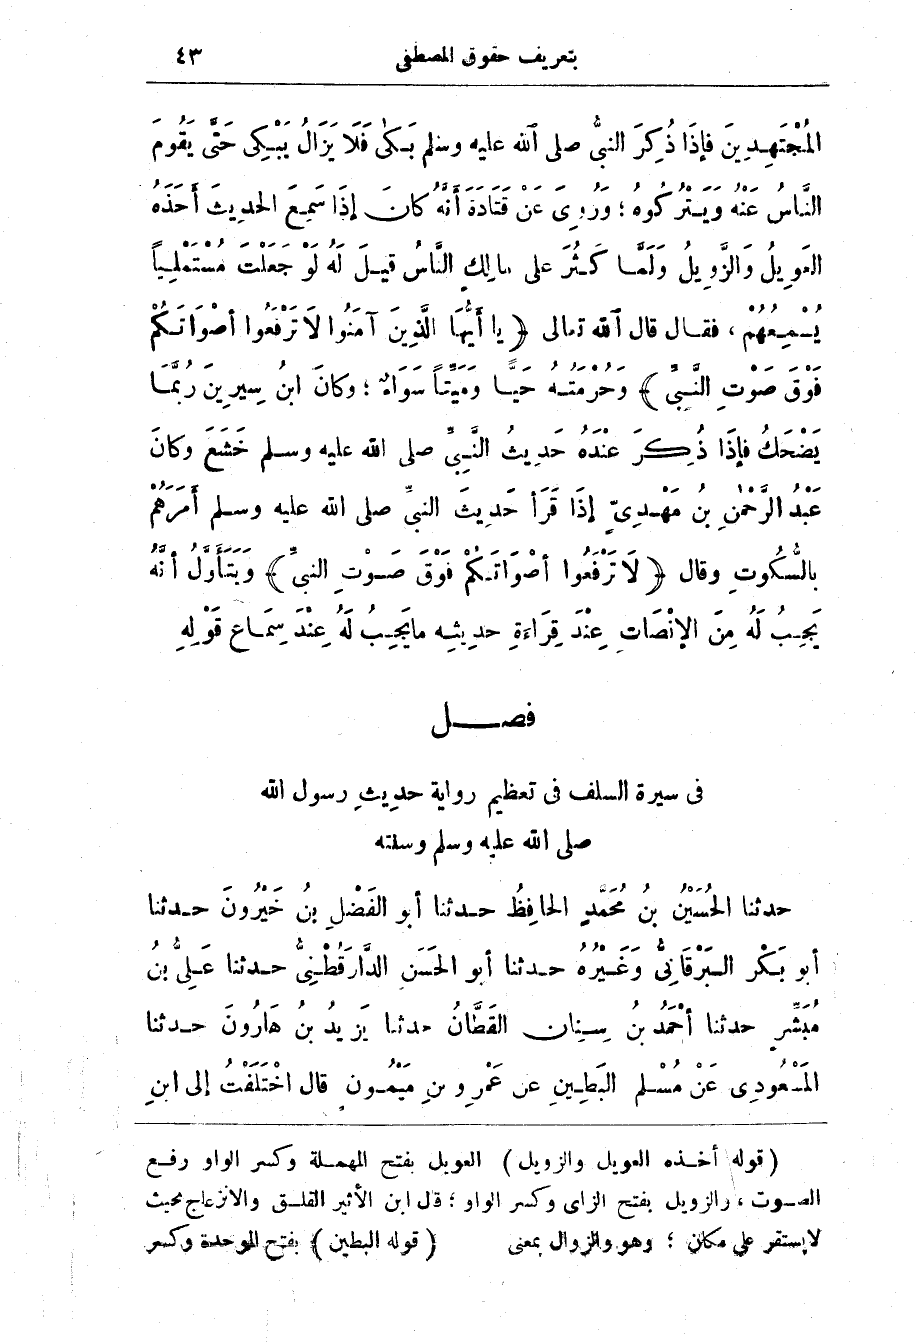 بتعريف حقوق المصطفى ٤٣
المُجْتَهِدِينَ فَإِذَا ذُكِرَ النبىُّ صلى الله عليه وسلم بَكَى فَلَا يَزَالُ يَبْكِى حَتَّى يَقُومَ
النَّاسُ عَنْهُ وَيَتْرُكُوهُ ؛ وَرُوِىَ عَنْ قَتَادَةَ أَنَّهُ كَانَ إِذَا سَمِعَ الحديثَ أَخَذَهُ
العَوِيلُ وَالزَّوِيلُ وَلَمَّا كَثُرَ على مالِكٍ النَّاسُ قيلَ لَهُ لَوْ جَعَلْتَ مُسْتَمْلِياً
يُسْمِعُهُمْ ، فقال قال الله تعالى ﴿ يا أَيُّهَا الَّذِينَ آمَنُوا لَا تَرْفَعُوا أَصْوَاتَكُمْ
فَوْقَ صَوْتِ النَّبِىِّ ﴾ وَحُرْمَتُهُ حَيًّا وَمَيِّتاً سَوَاءٌ ؛ وكانَ ابنُ سِيرِينَ رُبَّمَا
يَضْحَكُ فَإِذَا ذُكِرَ عِنْدَهُ حَدِيثُ النَّبِىِّ صلى الله عليه وسلم خَشَعَ وكَانَ
عَبْدُ الرَّحْمٰنِ بنُ مَهْدِىّ إِذَا قَرَأَ حَدِيثَ النبىِّ صلى الله عليه وسلم أَمَرَهُمْ
بالسُّكُوتِ وقال ﴿ لَا تَرْفَعُوا أَصْوَاتَكُمْ فَوْقَ صَوْتِ النبىِّ ﴾ وَيَتَأَوَّلُ أَنَّهُ
يَجِبُ لَهُ مِنَ الإِنْصَاتِ عِنْدَ قِرَاءَةِ حديثِهِ مايَجِبُ لَهُ عِنْدَ سَمَاعِ قَوْلِهِ
فصل
فى سيرة السلف فى تعظيم رواية حديث رسول الله
صلى الله عليه وسلم وسنته
حدثنا الحُسَيْنُ بنُ مُحَمَّدٍ الحافِظُ حدثنا أبو الفَضْلِ بنُ خَيْرُونَ حدثنا
أبو بَكْرِ البَرْقَانِىُّ وَغَيْرُهُ حدثنا أبو الحَسَنِ الدَّارَقُطْنِىُّ حدثنا عَلِىُّ بنُ
مُبَشِّرٍ حدثنا أَحْمَدُ بنُ سِنانٍ القَطَّانُ حدثنا يَزِيدُ بنُ هَارُونَ حدثنا
المَسْعُودِى عَنْ مُسْلِمٍ البَطِينِ عن عَمْرِو بنِ مَيْمُونٍ قال اخْتَلَفْتُ إلى ابنِ
(قوله أخذه العويل والزويل) العويل بفتح المهملة وكسر الواو رفع
الصوت ، والزويل بفتح الزاى وكسر الواو ؛ قال ابن الأثير القلق والانزعاج بحيث
لايستقر على مكان ؛ وهو والزوال بمعنى (قوله البطين) بفتح الموحدة وكسر